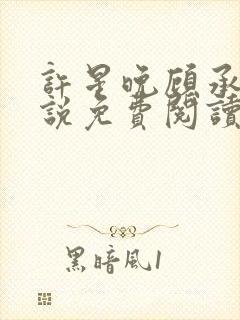 許星晚顧承
說免費閱讀
黑暗風1